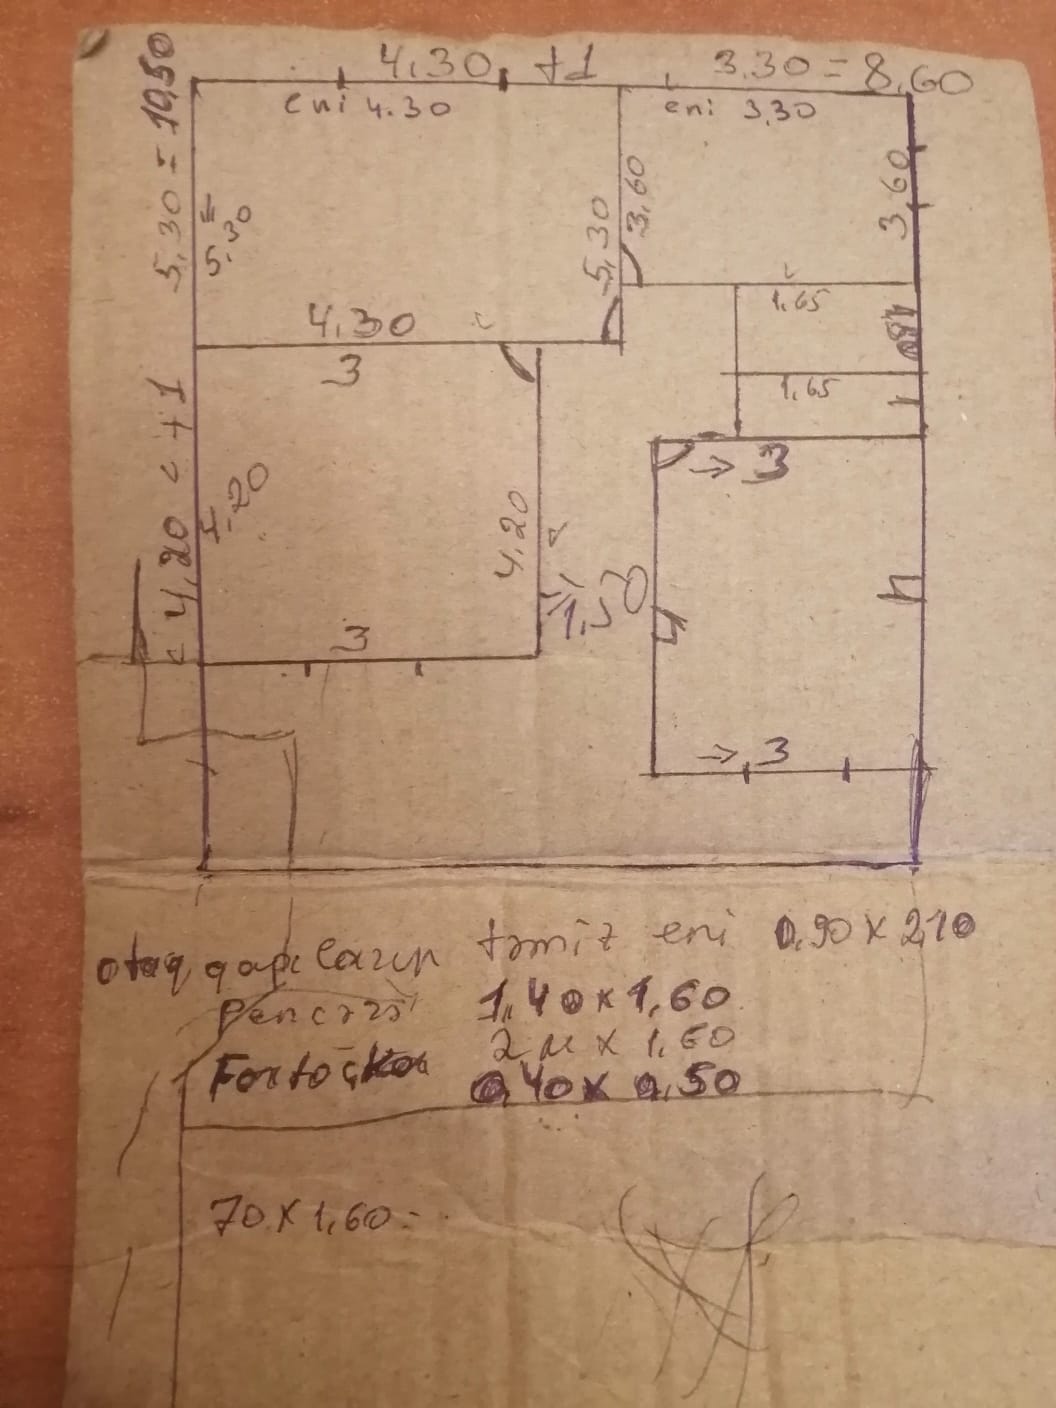 4.30 +1 3.30 = 8.60
eni 4.30
eni 3,30
5,30 = 10,50
5.30
5,30
3,60
3,60
4.30
1,65
1.80
3
1,65
1
4,20 < +1
→ 3
4,20
1,50
4
4
3
→ 3
otaq qapıların təmiz eni 0,90 x 2,10
Pencərə 1,40 x 1,60
2 м x 1,60
Fortoçka 0,40 x 0,50
70 x 1,60 =